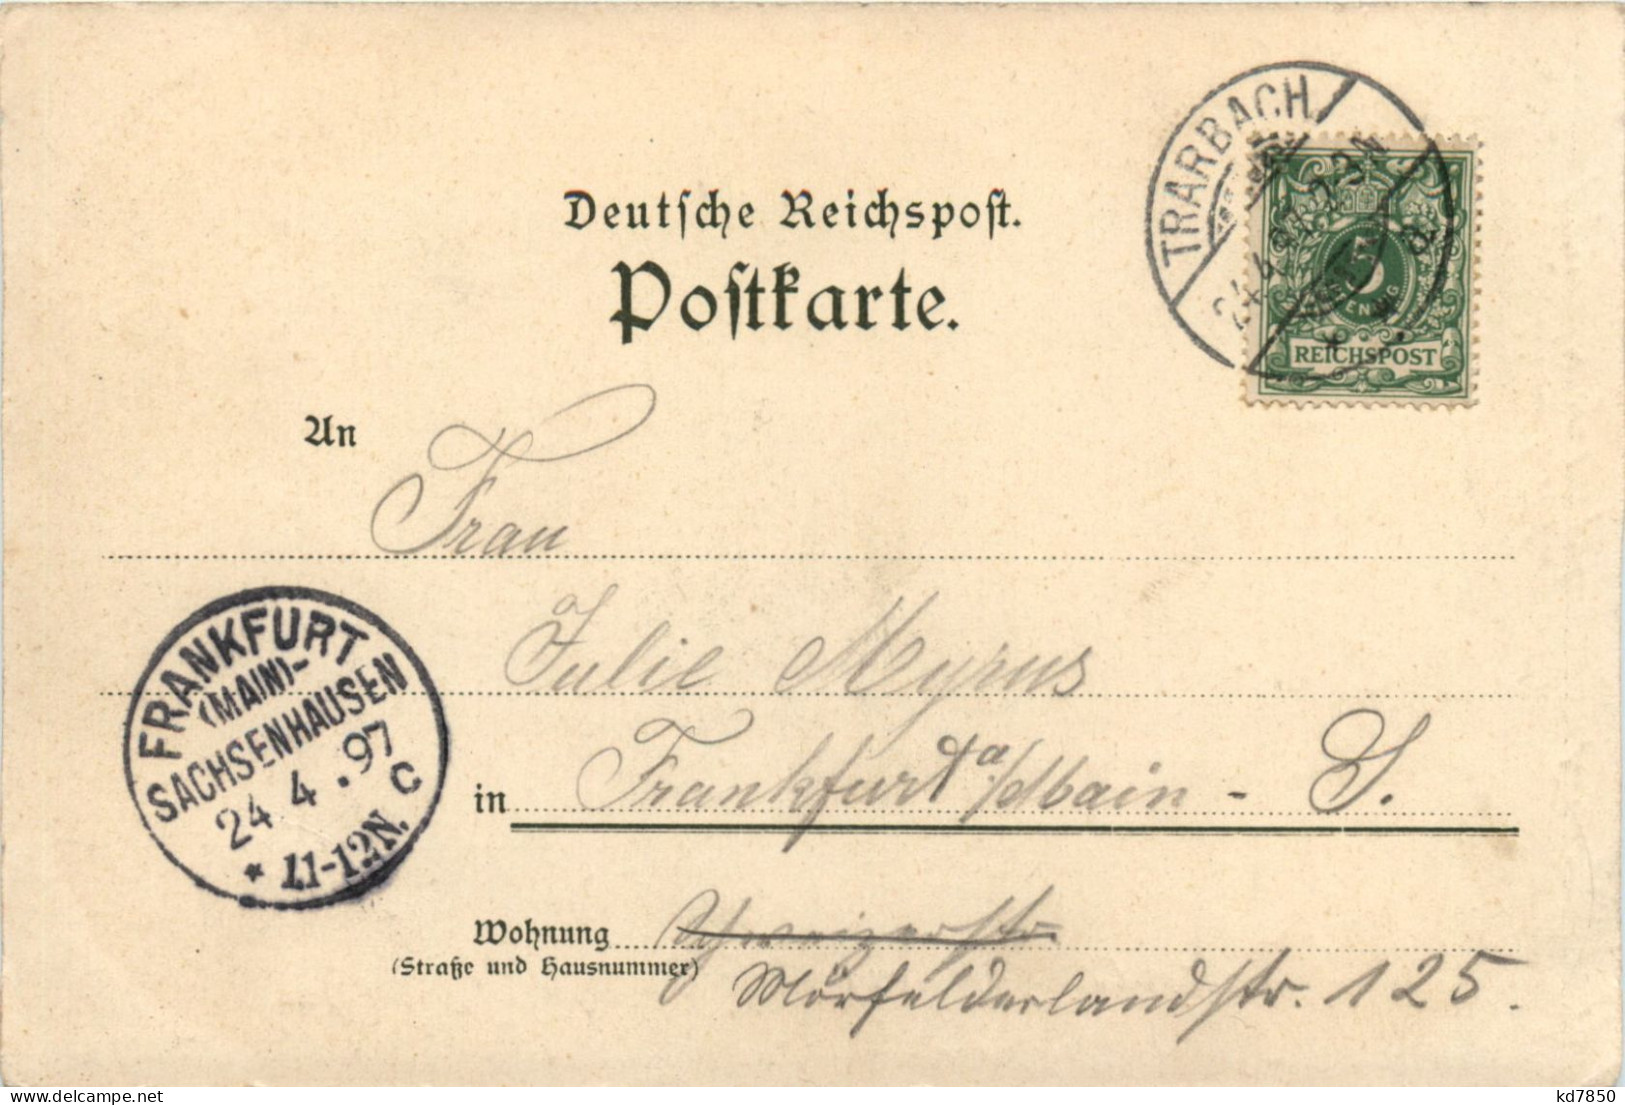 TRARBACH
24.4.97.2-3N
a
5
REICHSPOST
Deutsche Reichspost.
Postkarte.
An
Frau
Julie Myrus
in Frankfurt a/Main - S.
FRANKFURT
(MAIN)-
SACHSENHAUSEN
24 4.97
C
* 11-12N.
Wohnung Schweizerstr.
(Straße und Hausnummer)
Mörfelderlandstr. 125.
kd7850